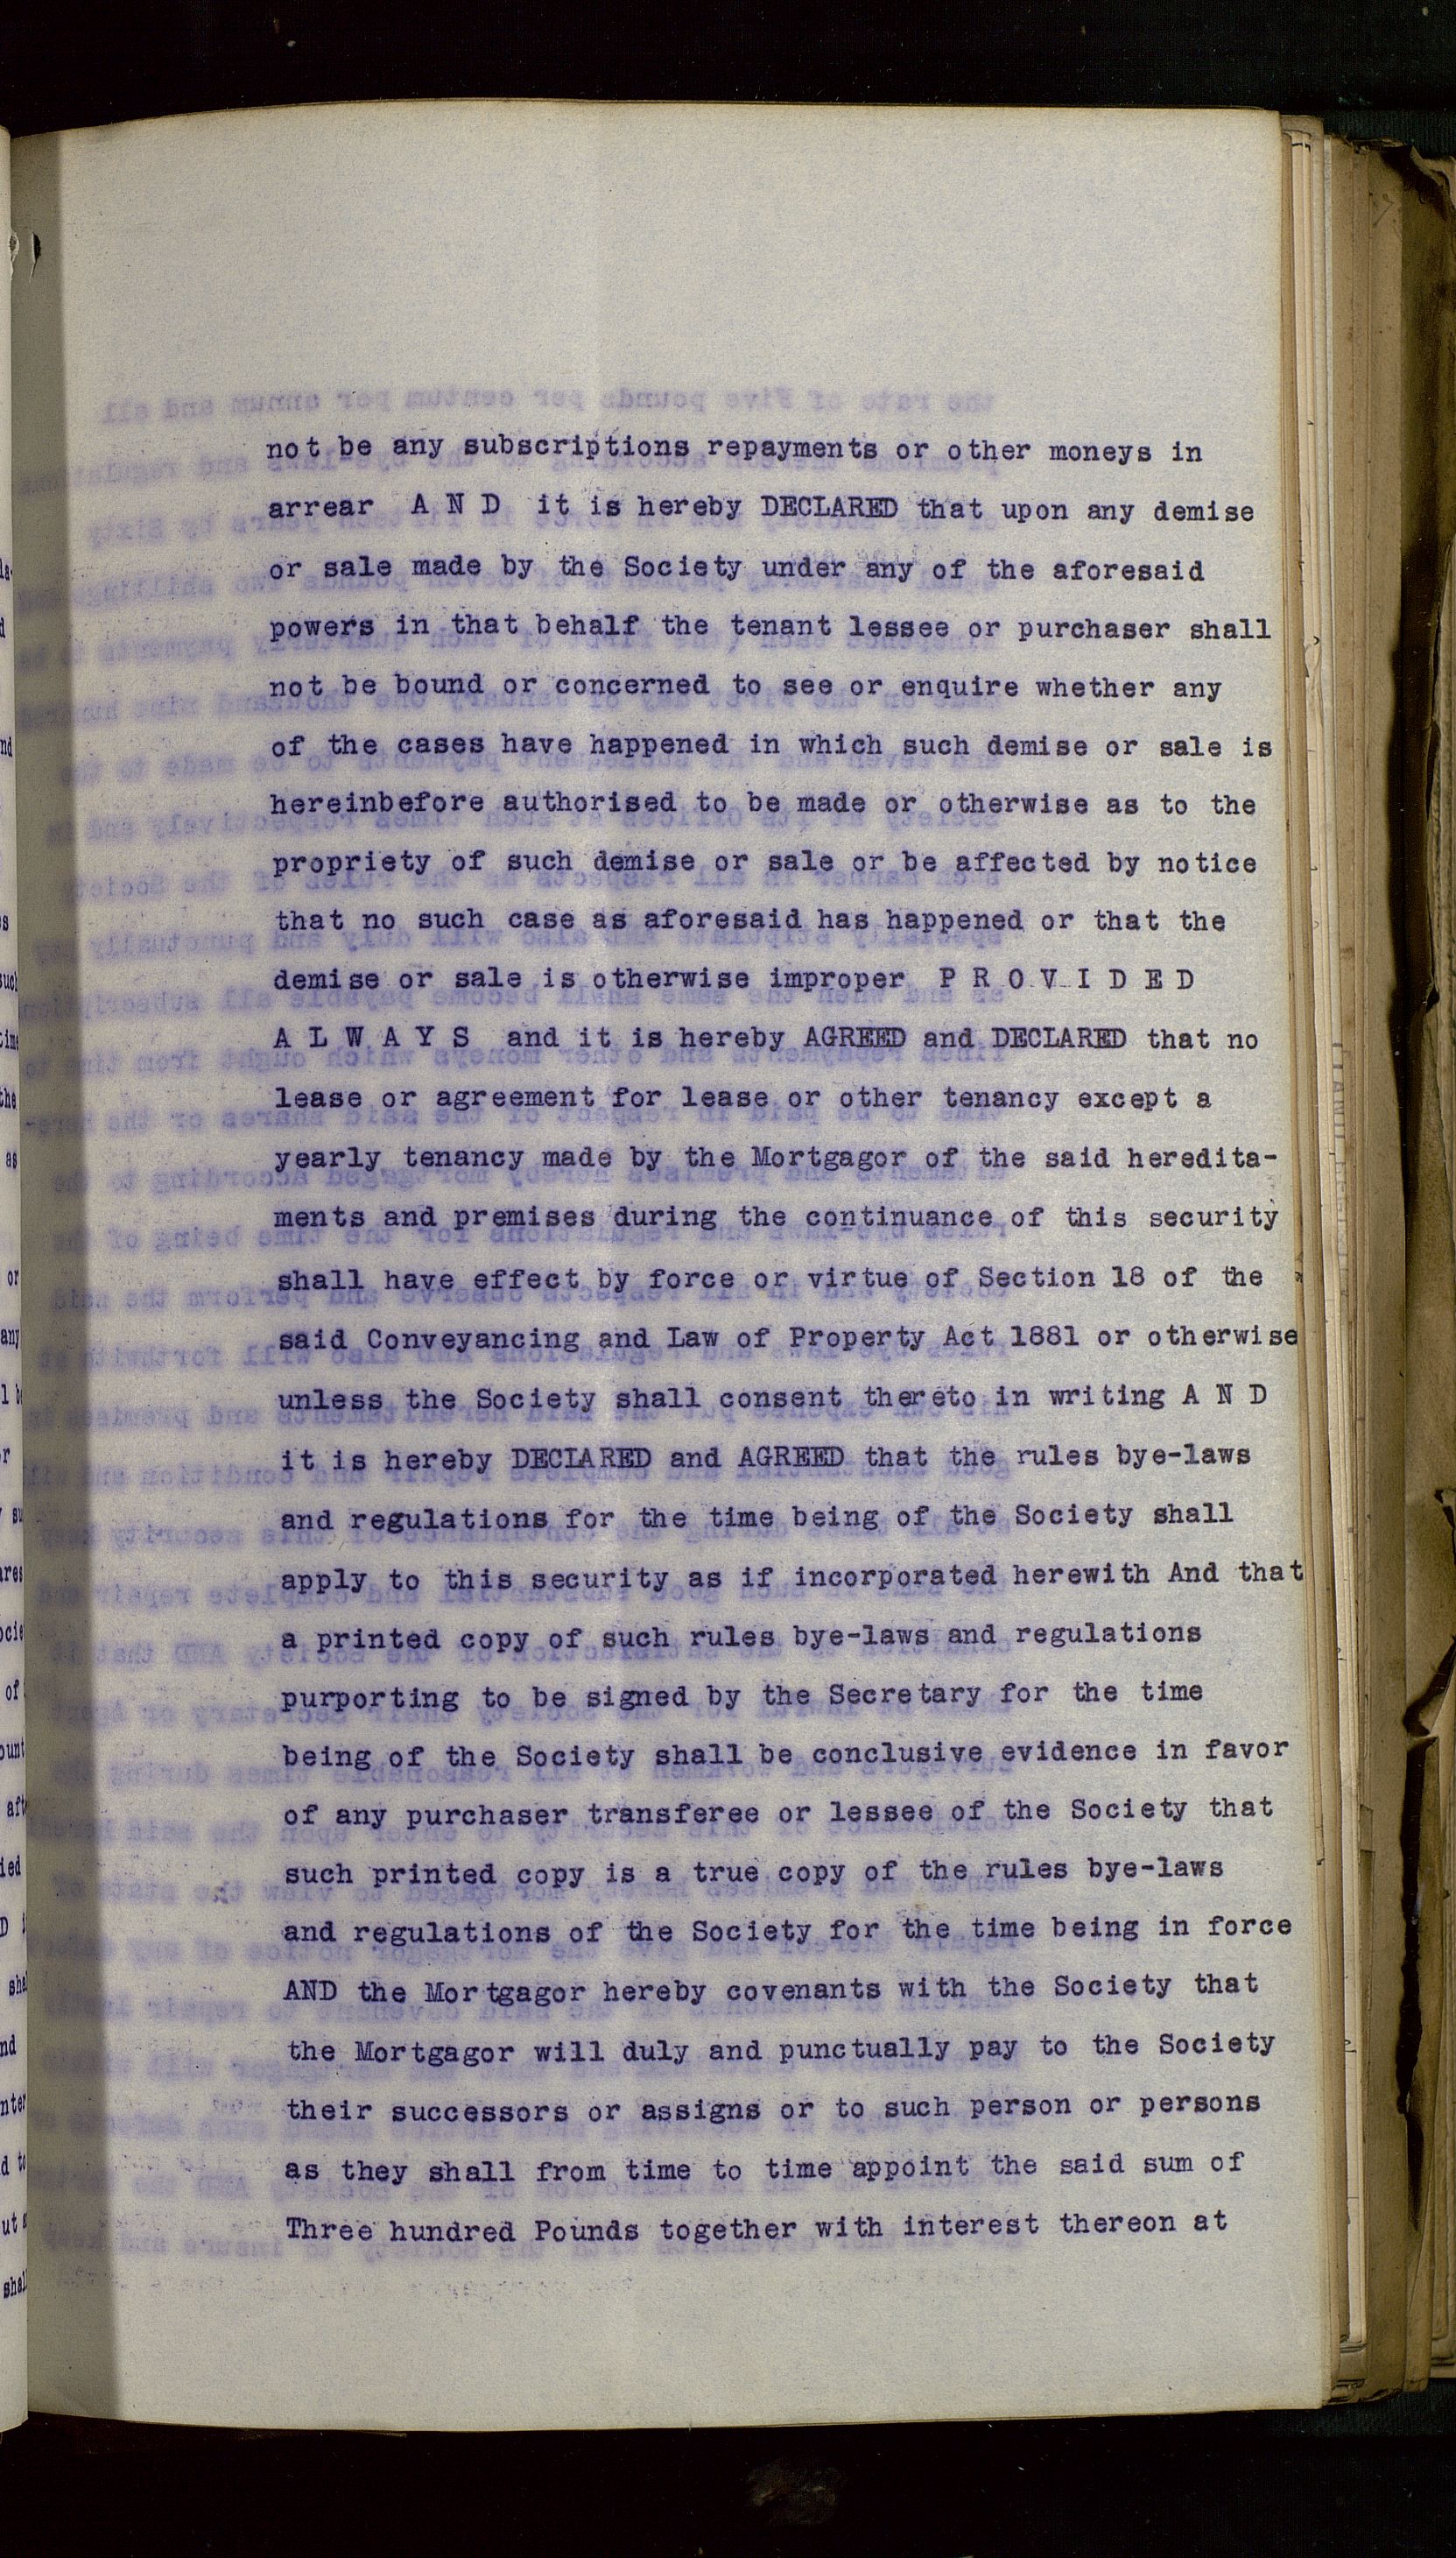 not be any subscriptions repayments or other moneys in
arrear A N D it is hereby DECLARED that upon any demise
or sale made by the Society under any of the aforesaid
powers in that behalf the tenant lessee or purchaser shall
not be bound or concerned to see or enquire whether any
of the cases have happened in which such demise or sale is
hereinbefore authorised to be made or otherwise as to the
propriety of such demise or sale or be affected by notice
that no such case as aforesaid has happened or that the
demise or sale is otherwise improper P R O V I D E D
A L W A Y S and it is hereby AGREED and DECLARED that no
lease or agreement for lease or other tenancy except a
yearly tenancy made by the Mortgagor of the said heredita-
ments and premises during the continuance of this security
shall have effect by force or virtue of Section 18 of the
said Conveyancing and Law of Property Act 1881 or otherwise
unless the Society shall consent thereto in writing A N D
it is hereby DECLARED and AGREED that the rules bye-laws
and regulations for the time being of the Society shall
apply to this security as if incorporated herewith And that
a printed copy of such rules bye-laws and regulations
purporting to be signed by the Secretary for the time
being of the Society shall be conclusive evidence in favor
of any purchaser transferee or lessee of the Society that
such printed copy is a true copy of the rules bye-laws
and regulations of the Society for the time being in force
AND the Mortgagor hereby covenants with the Society that
the Mortgagor will duly and punctually pay to the Society
their successors or assigns or to such person or persons
as they shall from time to time appoint the said sum of
Three hundred Pounds together with interest thereon at